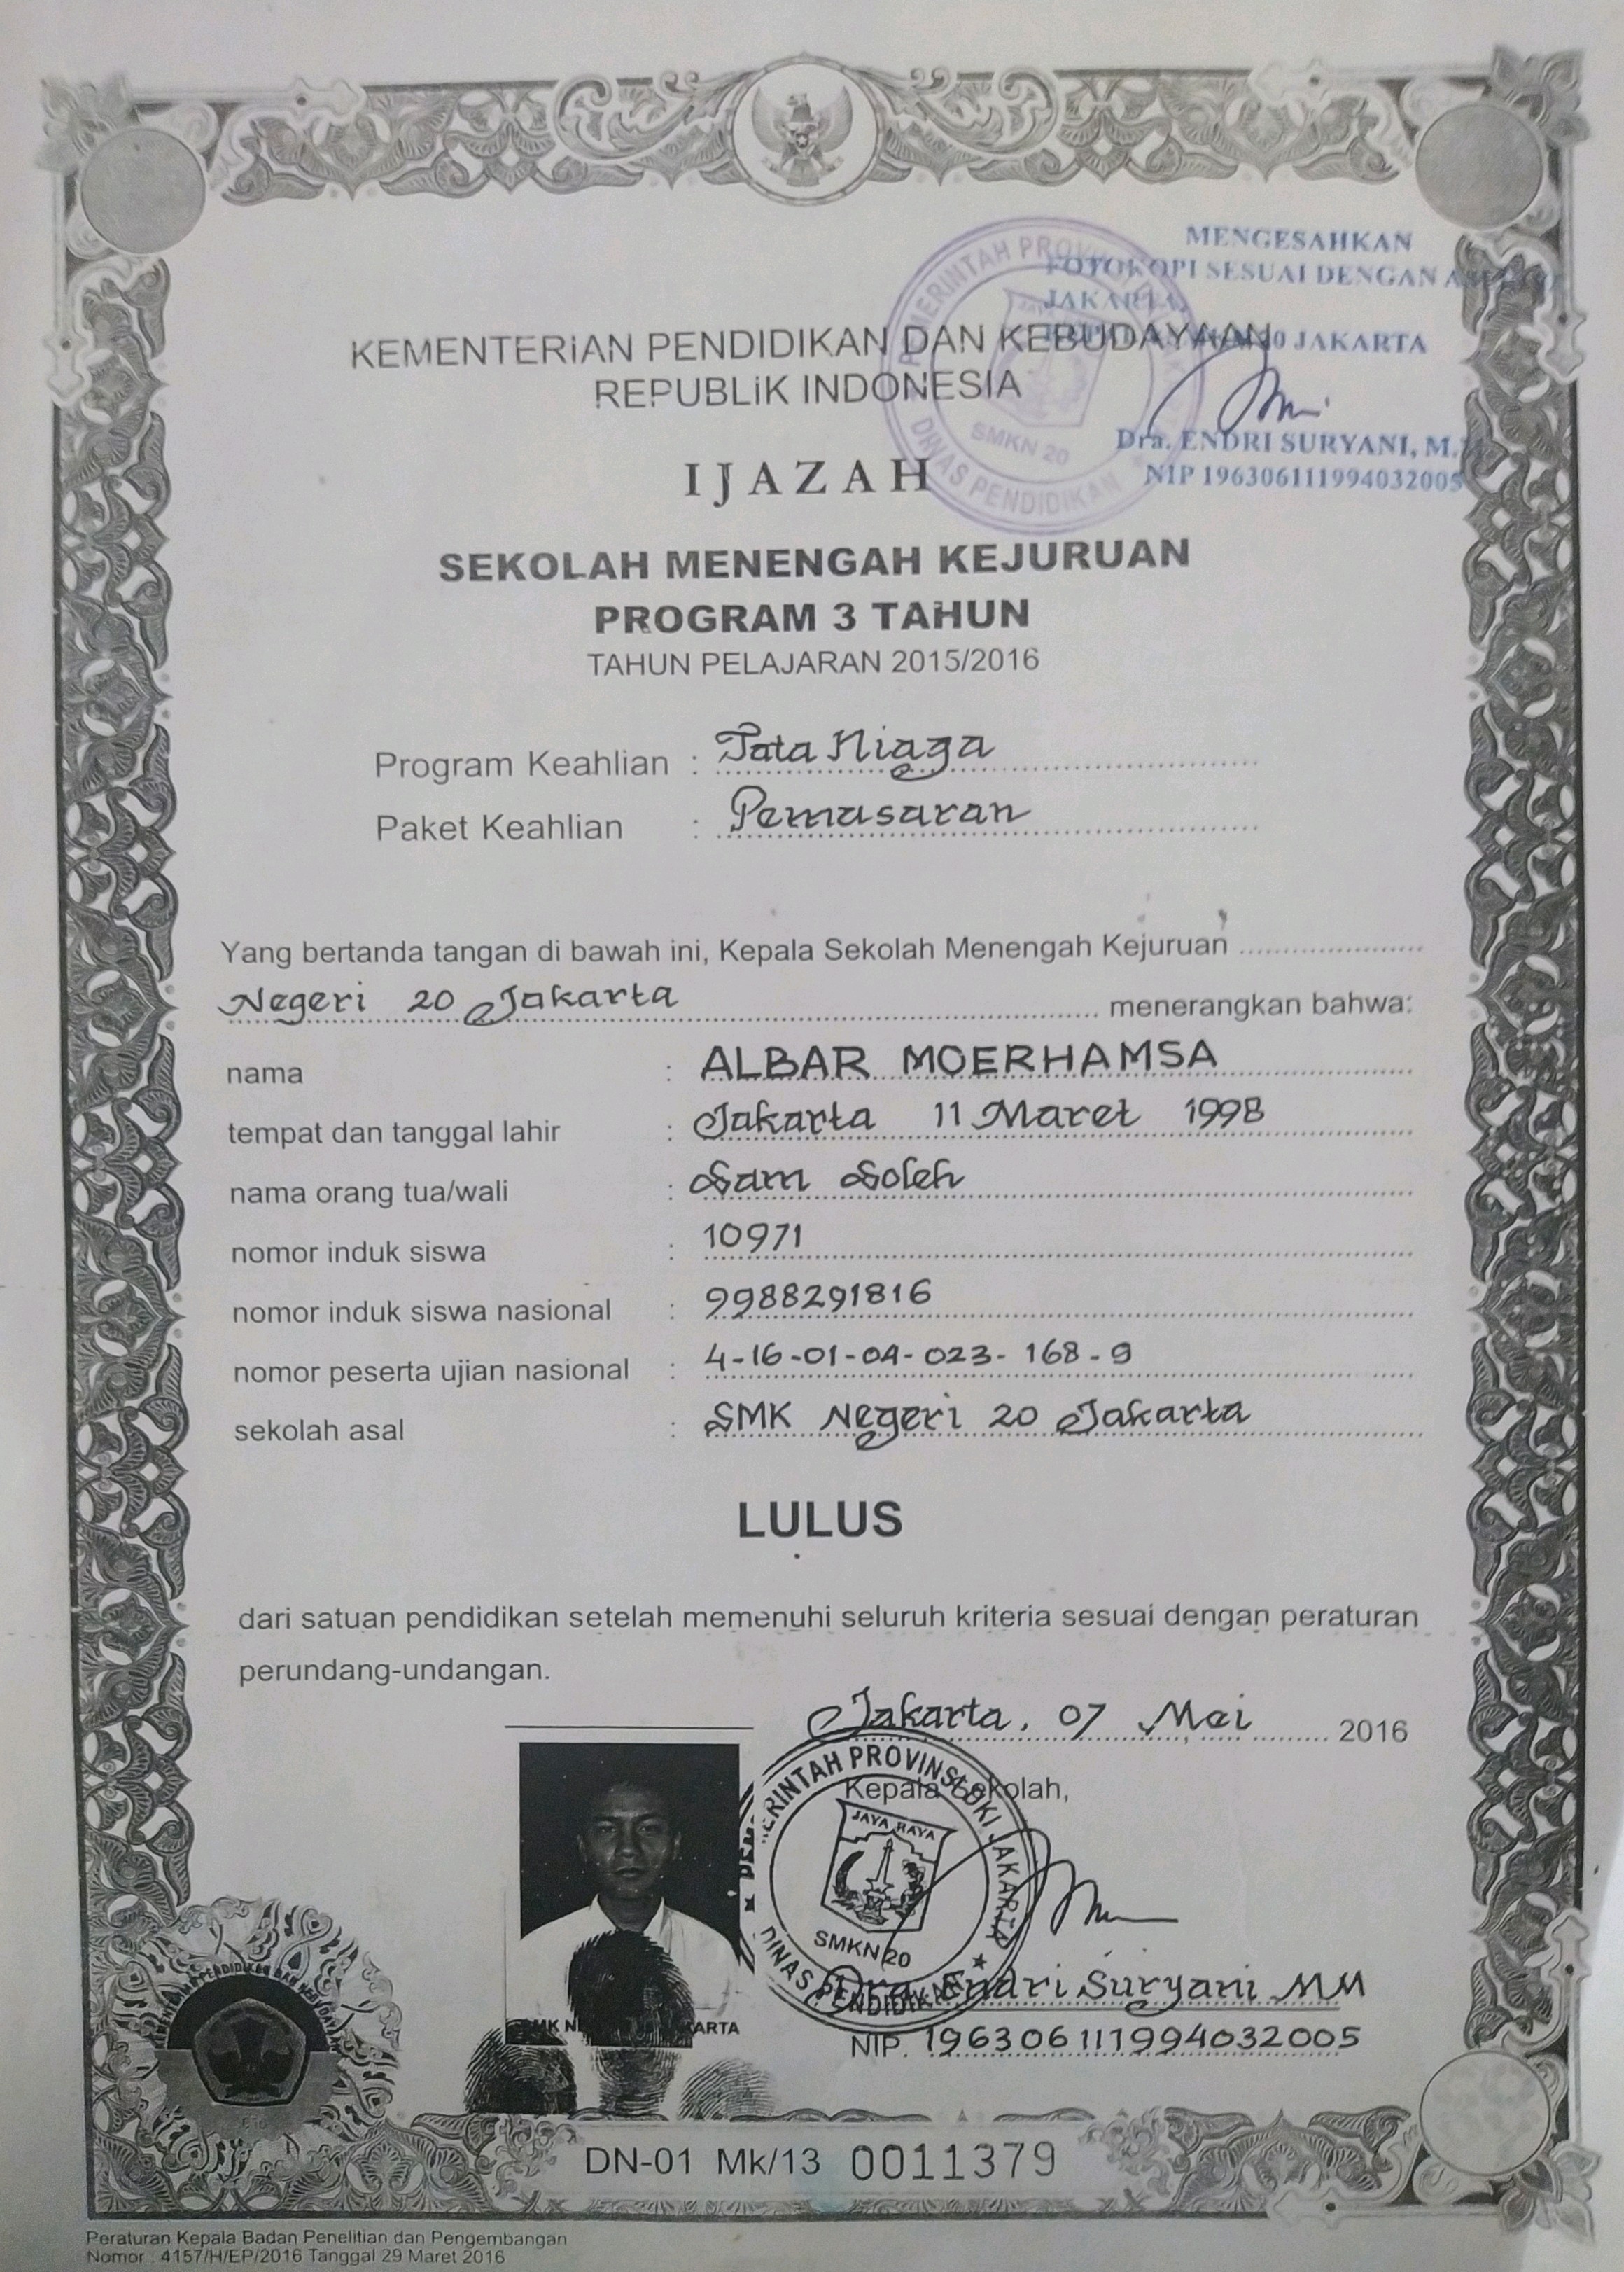 MENGESAHKAN
FOTOKOPI SESUAI DENGAN
JAKARTA,
20 JAKARTA
Dra. ENDRI SURYANI, M.
NIP 196306111994032005
PEMERINTAH PROVINSI
SMKN 20
DINAS PENDIDIKAN
KEMENTERIAN PENDIDIKAN DAN KEBUDAYAAN
REPUBLIK INDONESIA
IJAZAH
SEKOLAH MENENGAH KEJURUAN
PROGRAM 3 TAHUN
TAHUN PELAJARAN 2015/2016
Program Keahlian : Tata Niaga
Paket Keahlian : Pemasaran
Yang bertanda tangan di bawah ini, Kepala Sekolah Menengah Kejuruan
Negeri 20 Jakarta menerangkan bahwa:
nama : ALBAR MOERHAMSA
tempat dan tanggal lahir : Jakarta 11 Maret 1998
nama orang tua/wali : Sam Soleh
nomor induk siswa : 10971
nomor induk siswa nasional : 9988291816
nomor peserta ujian nasional : 4-16-01-04-023-168-9
sekolah asal : SMK Negeri 20 Jakarta
LULUS
dari satuan pendidikan setelah memenuhi seluruh kriteria sesuai dengan peraturan
perundang-undangan.
Jakarta, 07 Mei 2016
Kepala Sekolah,
PEMERINTAH PROVINSI DKI JAKARTA
JAYA RAYA
SMKN 20
DINAS PENDIDIKAN
Dra. Endri Suryani MM
NIP. 196306111994032005
DN-01 Mk/13 0011379
Peraturan Kepala Badan Penelitian dan Pengembangan
Nomor : 4157/H/EP/2016 Tanggal 29 Maret 2016